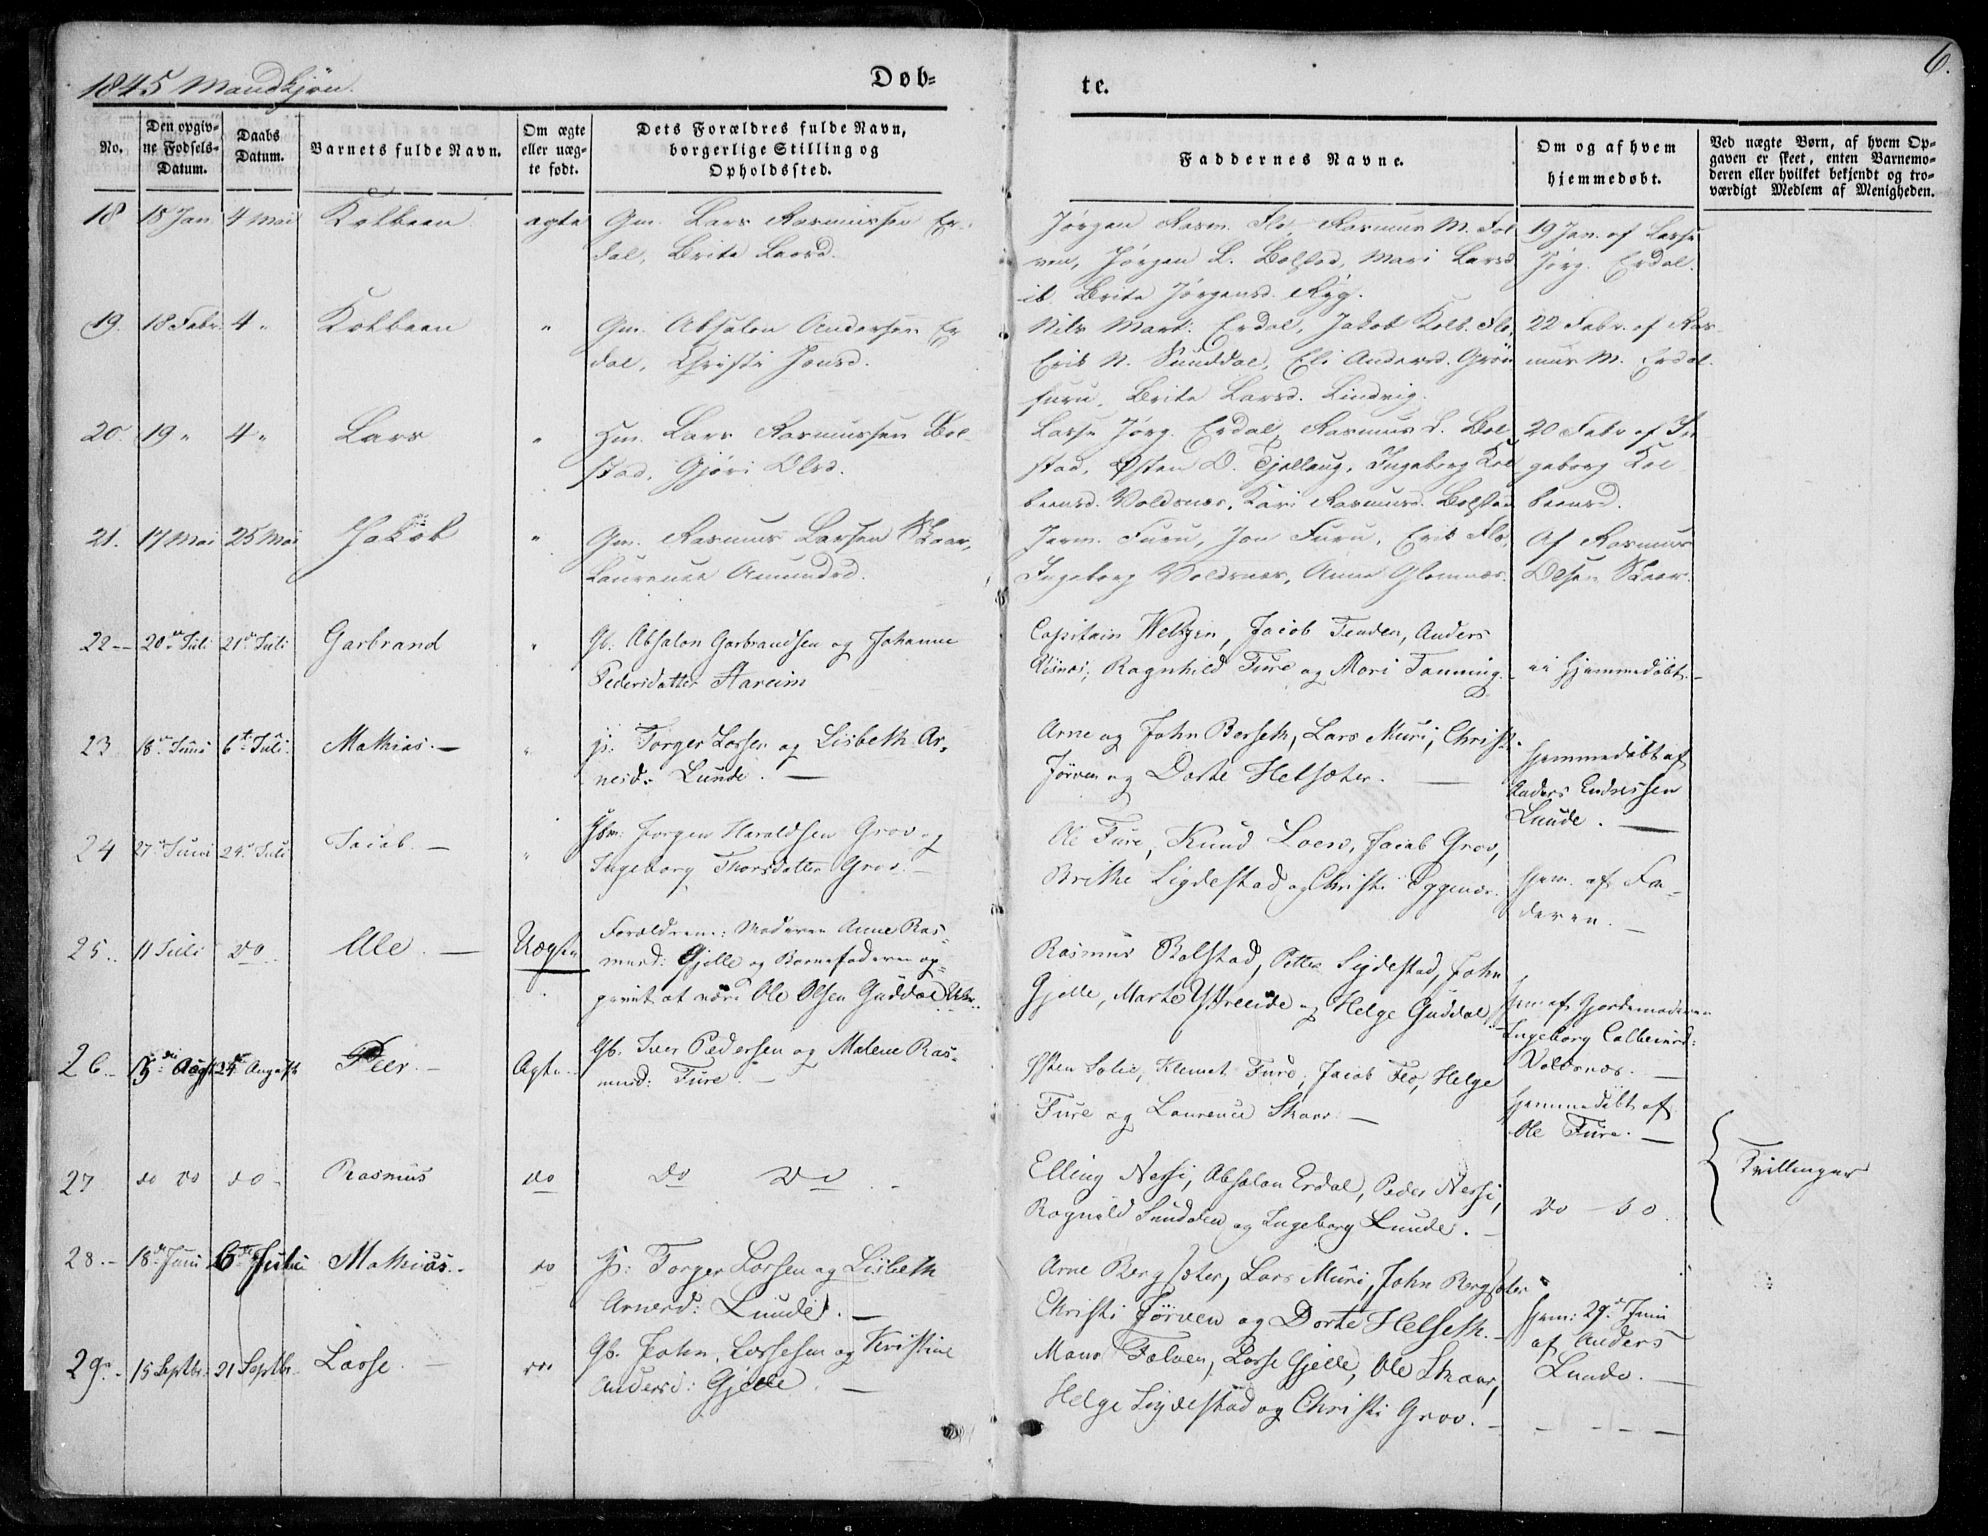 1845 Mandkjøn.
Døb=
te.
6.
No.
Den opgiv=
ne Fødsels=
Datum.
Daabs
Datum.
Barnets fulde Navn.
Om ægte
eller uæg=
te født.
Dets Forældres fulde Navn,
borgerlige Stilling og
Opholdssted.
Faddernes Navne.
Om og af hvem
hjemmedøbt.
Ved uægte Børn, af hvem Op=
gaven er skeet, enten Barnemo=
deren eller hvilket bekjendt og tro=
værdigt Medlem af Menigheden.
18 15 Jan 4 Mai Kolbeen ægte Gm. Lars Rasmussen Er-
dal, Brite Larsd.
Jørgen Rasm. Flo, Rasmus M. Fol
ven, Jørgen L. Bolstad, Mari Larsd
ib. Brite Jørgensd. Ryg.
19 Jan. af Lasse
Jørg. Erdal.
19. 18 Febr. 4 " Kolbeen " Gm. Absalon Andersen Er
dal, Christi Jonsd.
Nils Mart. Erdal, Jakob Kolb. Flo,
Erik N. Sunddal, Eli Andersd. Grøn
furu, Brite Larsd. Lindvig.
22 Febr. af Ras-
mus M. Erdal.
20. 19 " 4 " Lars " Hm. Lars Rasmussen Bol-
stad, Gjøri Olsd.
Lasse Jørg. Erdal, Rasmus L. Bol
stad, Østen O. Tjellaug, Ingeborg Kol
beensd. Voldsnes, Kari Rasmusd. Bolstad
20 Febr af In
geborg Kol-
beensd.
21. 17 Mai 25 Mai Jakob " Gm. Rasmus Larsen Skaar,
Laurense Amundsd.
Jerm. Furu, Jon Furu, Erik Flo,
Ingeborg Voldsnes, Anne Glomnes.
Af Rasmus
Olsen Skaar.
22-- 20de Juli 21de Juli Garbrand " Gb. Absalon Garbrandsen og Johanne
Pedersdatter Aareim
Capitain Welzin, Jacob Tenden, Anders
Riisnes, Ragnhild Fure og Mari Tanning.
ei Hjemmedøbt.-
23 18de Juni 6te Juli Mathias.- " Js. Torger Larsen og Lisbeth Ar-
nesd. Lunde.-
Arne og John Berseth, Lars Muri, Christi
Jørven og Dorte Helsæter.-
Hjemmedøbt af
Anders Endressen
Lunde.-
24 27de Juni 24de Juli Jacob.- " Gbm: Jorgen Haraldsen Grov og
Ingeborg Thorsdatter Grov.-
Ole Fure, Knud Loen, Jacob Grov,
Brithe Sigdestad og Christi Yggenes.
Hjem. af Fa-
deren.-
25.. 11 Juli do Ole.- Uægte Forældrene: Moderen Anne Ras-
musd: Gjelle og Barnefaderen op-
givet at være Ole Olsen Guddal
Rasmus Bolstad, Petter Sigdestad, John
Gjelle, Marte Yttreeide og Helge Guddal.
Hjem af Gjordemoderen
Ingeborg Colbeinsd:
Voldsnes.-
26.- 15de Augst 24de August Peer.- Ægte.. Gb. Iver Pedersen og Malene Ras-
musd: Fure.-
Østen Solie, Klemet Fure, Jacob Flo, Helge
Fure og Laurence Skaar.-
Hjemmedøbt af
Ole Fure.-
27 do do do - Rasmus do do do -
Elling Nesse, Absalon Erdal, Peder Nesse,
Ragnild Sundalen og Ingeborg Lunde.-
do - do.
Tvillinger
28.- 18de Juni 6te Julie Mathias.- do Js: Torger Larsen og Lisbeth
Arnesd: Lunde.-
Arne Bergsæter, Lars Muri, John Bergsæter
Christi Jørven og Dorte Helseth.-
Hjem: 29de Juni
af Anders
Lunde.-
29.- 15 Septbr. 21 Septbr. Lasse.- do Gb. John Lassesen og Kristine
Andersd: Gjelle.-
Mons Følven, Lasse Gjelle, Ole Skaar,
Helge Sigdestad og Christi Grov.-
- - - -